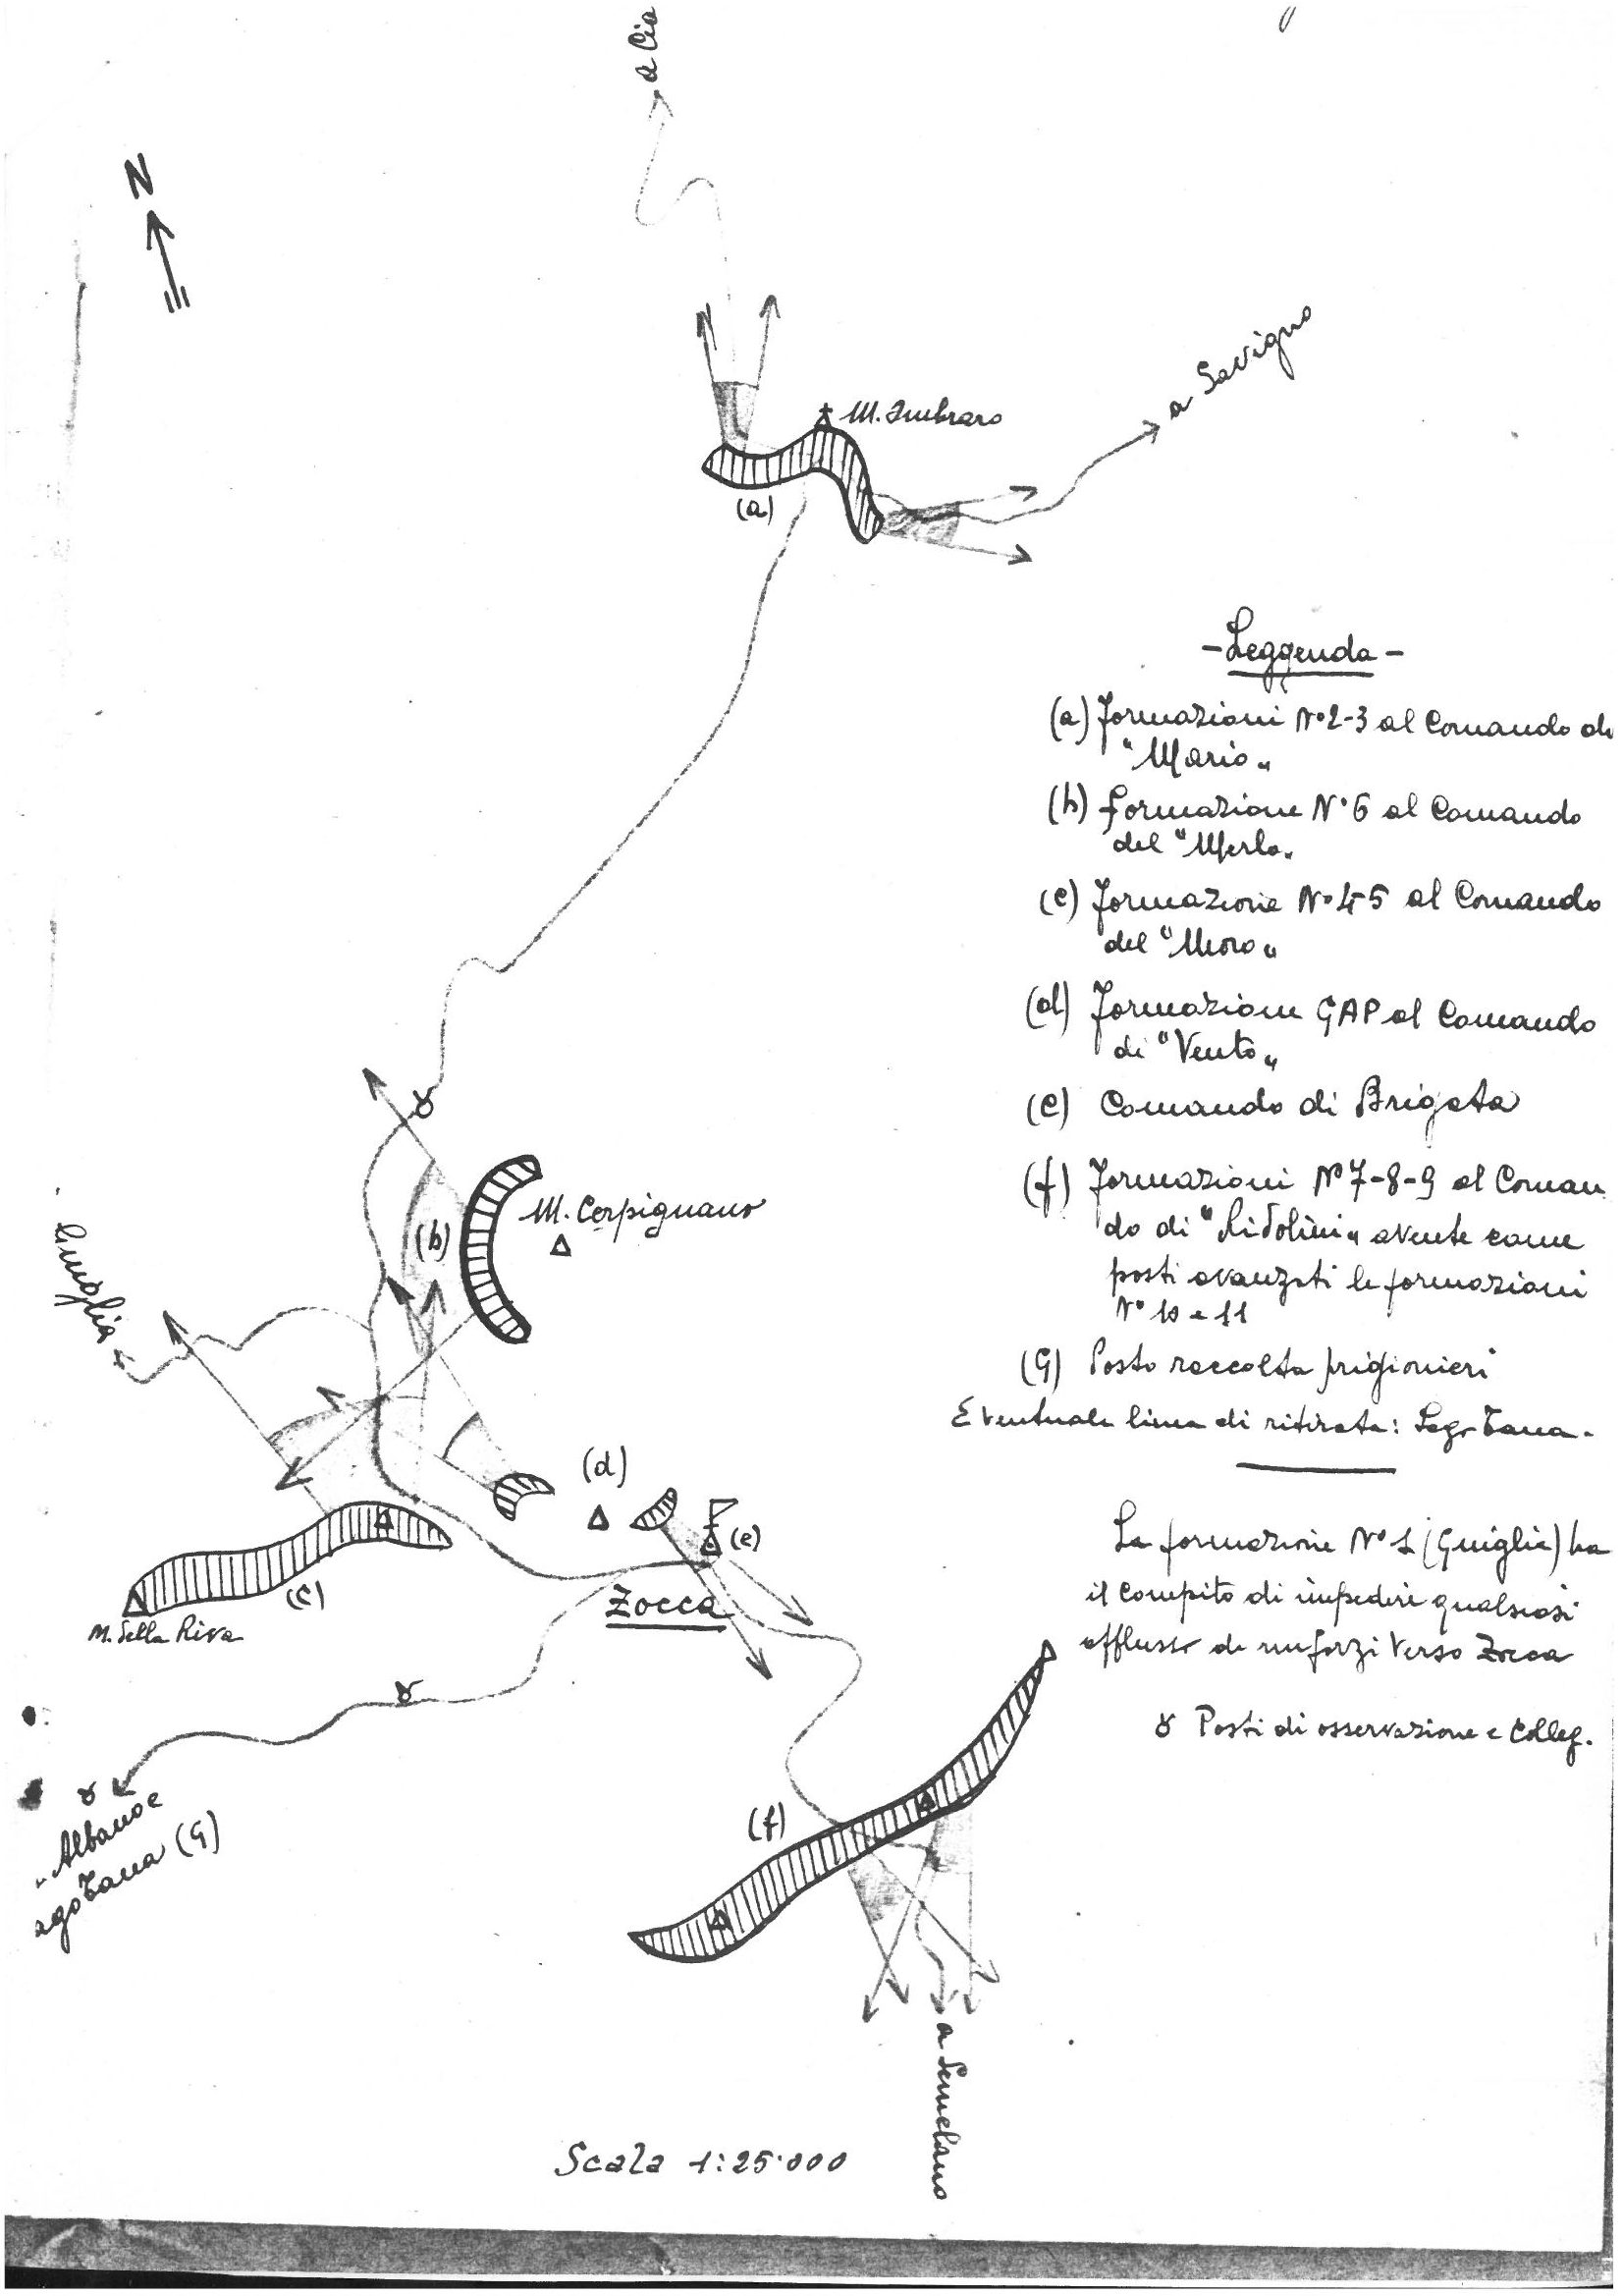 a Cia
N
M. Imbraro
a Savigno
(a)
- Leggenda -
(a) Formazioni N° 2-3 al Comando di
"Mario"
(b) formazione N° 6 al Comando
del "Merlo"
(c) formazione N° 4-5 al Comando
del "Moro"
(d) Formazioni GAP al Comando
di "Vento"
(e) Comando di Brigata
(f) Formazioni N° 7-8-9 al Coman
do di "Ridolini" avente come
posti avanzati le formazioni
N° 10 e 11
(G) Posto raccolta prigionieri
Eventuale linea di ritirata:
La formazione N° 1 (Guiglia) ha
il compito di impedire qualsiasi
afflusso di rinforzi verso Zocca
Posti di osservazione e colleg.
M. Cerpignano
(b)
(d)
(e)
(c)
Zocca
M. Della Riva
(f)
Albano e
(G)
a Semelano
Scala 1:25.000